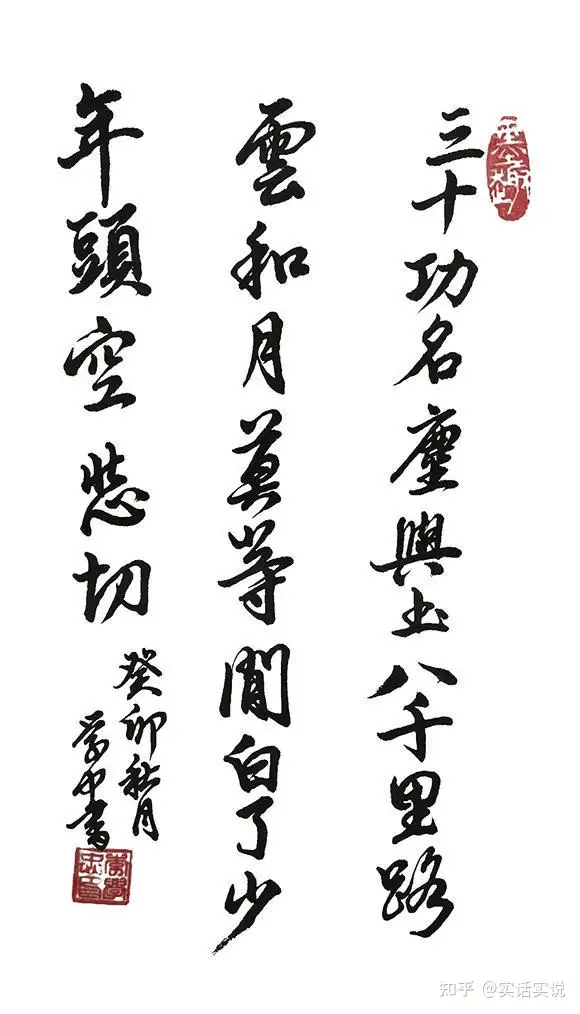 墨趣
三十功名塵與土八千里路
雲和月莫等閒白了少
年頭空悲切
癸卯秋月
学中書
知乎 @实话实说